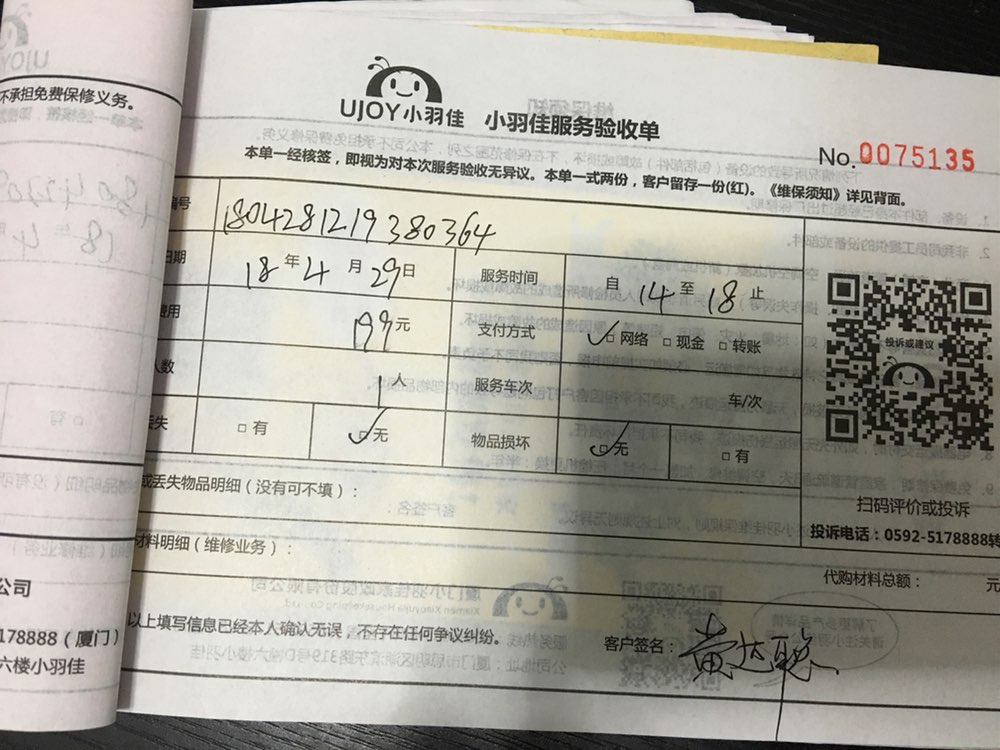 不承担免费保修义务。
UJOY小羽佳 小羽佳服务验收单
No.0075135
本单一经核签，即视为对本次服务验收无异议。本单一式两份，客户留存一份(红)。《维保须知》详见背面。
编号 1804281219380364
日期 18年4月29日 服务时间 自14至18止
费用 199元 支付方式 ✓□网络 □现金 □转账
人数 1人 服务车次 车/次
丢失 □有 ✓□无 物品损坏 ✓□无 □有
投诉或建议
扫码评价或投诉
投诉电话：0592-5178888转
或丢失物品明细（没有可不填）：
材料明细（维修业务）：
代购材料总额： 元
以上填写信息已经本人确认无误，不存在任何争议纠纷。
客户签名：黄达聪
公司
178888（厦门）
六楼小羽佳